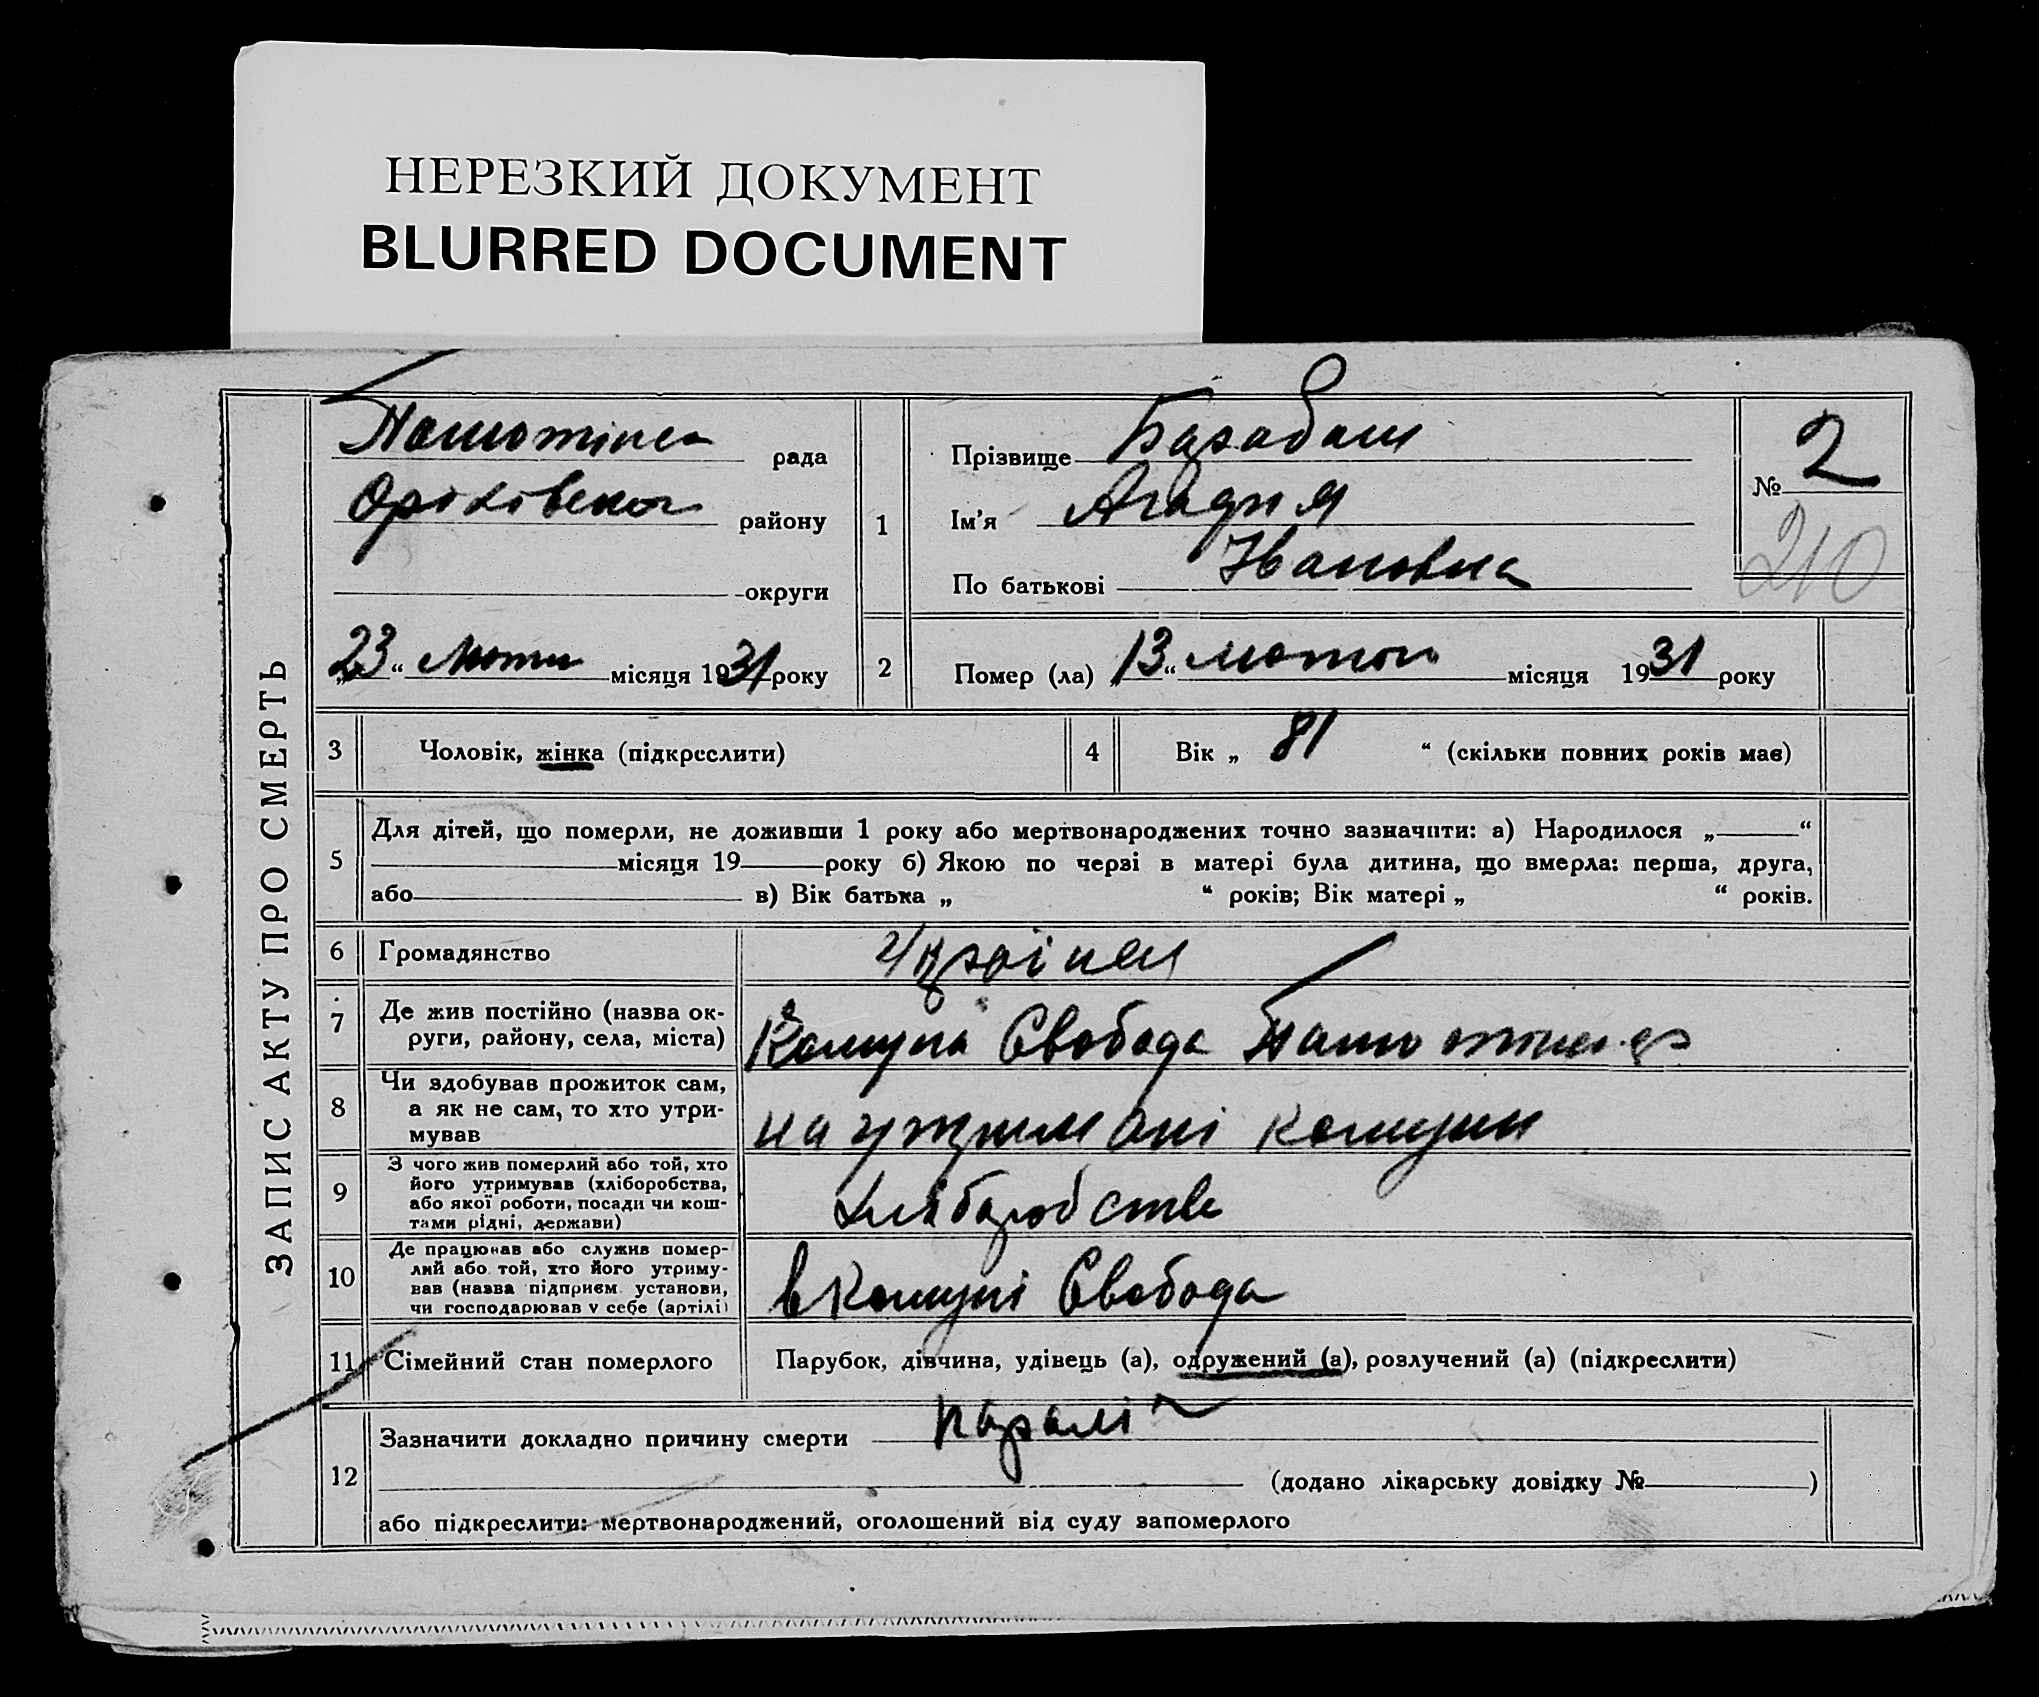 НЕРЕЗКИЙ ДОКУМЕНТ
BLURRED DOCUMENT
ЗАПИС АКТУ ПРО СМЕРТЬ
рада
району
округи
„23“ Лютия місяця 1931 року
1
Прізвище Барабаш
Ім'я Агафия
По батькові Ивановна
№ 2
210
2
Помер (ла) 13“ лютого місяця 1931 року
3 Чоловік, жінка (підкреслити)
4 Вік „ 81 “ (скільки повних років має)
5 Для дітей, що померли, не доживши 1 року або мертвонароджених точно зазначити: а) Народилося „ “
місяця 19 року б) Якою по черзі в матері була дитина, що вмерла: перша, друга,
або в) Вік батька „ “ років; Вік матері „ “ років.
6 Громадянство
7 Де жив постійно (назва ок-
руги, району, села, міста)
Комуна Свобода
8 Чи здобував прожиток сам,
а як не сам, то хто утри-
мував
на утримані комуни
9 З чого жив померлий або той, хто
його утримував (хліборобства,
або якої роботи, посади чи кош-
тами рідні, держави)
хліборобство
10 Де працював або служив помер-
лий або той, хто його утриму-
вав (назва підприєм. установи,
чи господарював у себе (артілі)
в комуні Свобода
11 Сімейний стан померлого
Парубок, дівчина, удівець (а), одружений (а), розлучений (а) (підкреслити)
12 Зазначити докладно причину смерти параліч
(додано лікарську довідку № )
або підкреслити: мертвонароджений, оголошений від суду запомерлого